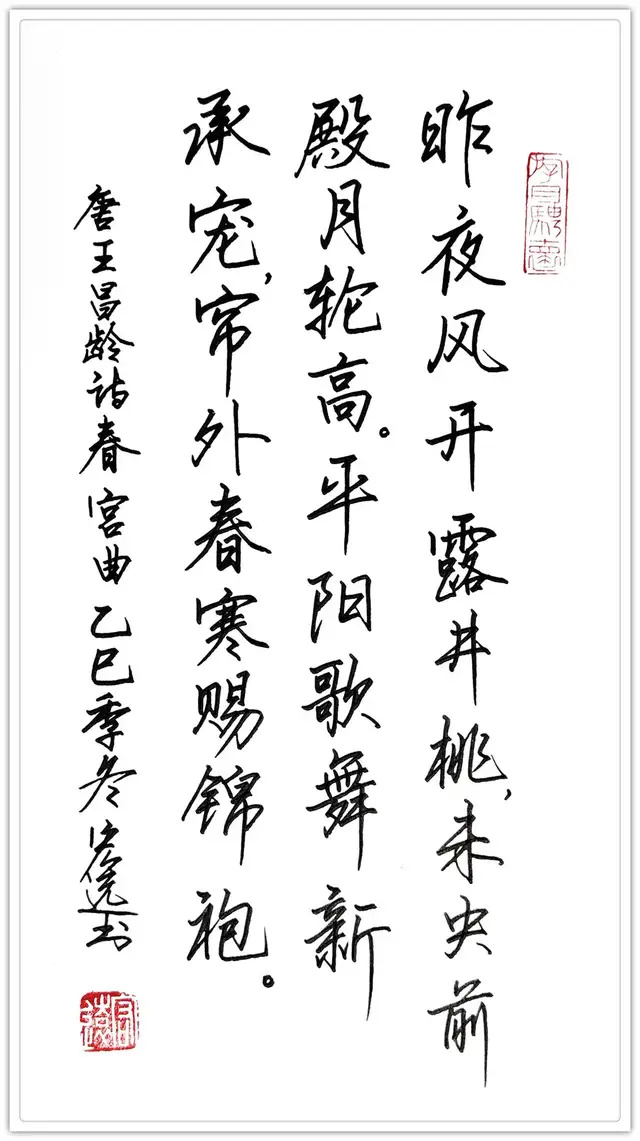 昨夜风开露井桃,未央前
殿月轮高。平阳歌舞新
承宠,帘外春寒赐锦袍。
唐王昌龄诗春宫曲乙巳季冬